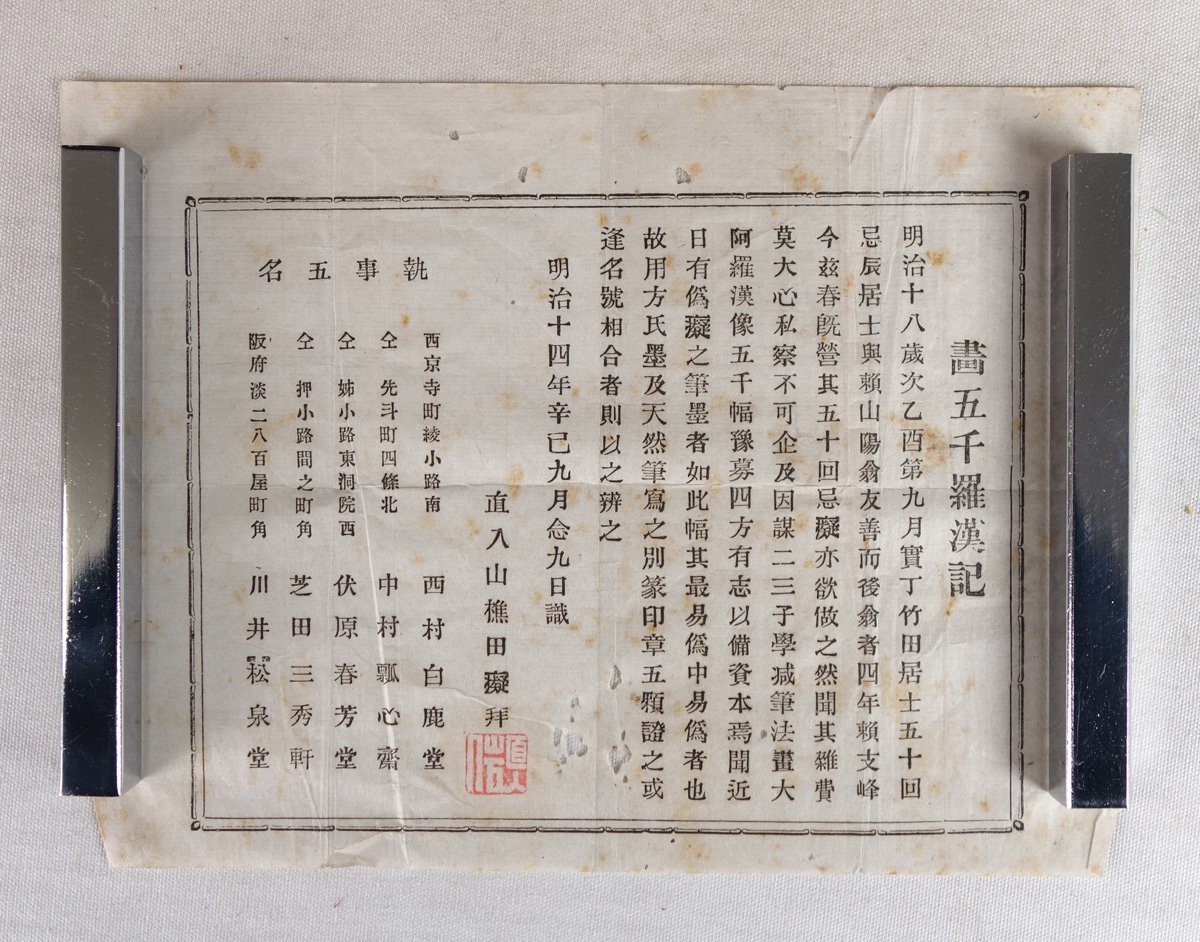 畵五千羅漢記
明治十八歲次乙酉第九月實丁竹田居士五十回
忌辰居士與賴山陽翁友善而後翁者四年賴支峰
今玆春旣營其五十回忌癡亦欲倣之然聞其雜費
莫大心私察不可企及因謀二三子學减筆法畫大
阿羅漢像五千幅豫募四方有志以備資本焉聞近
日有僞癡之筆墨者如此幅其最易僞中易僞者也
故用方氏墨及天然筆寫之別篆印章五顆證之或
逢名號相合者則以之辨之
明治十四年辛巳九月念九日識
直入山樵田癡拜
執事五名
西京寺町綾小路南 西村白鹿堂
仝 先斗町四條北 中村瓢心齋
仝 姊小路東洞院西 伏原春芳堂
仝 押小路間之町角 芝田三秀軒
阪府淡二八百屋町角 川井松泉堂